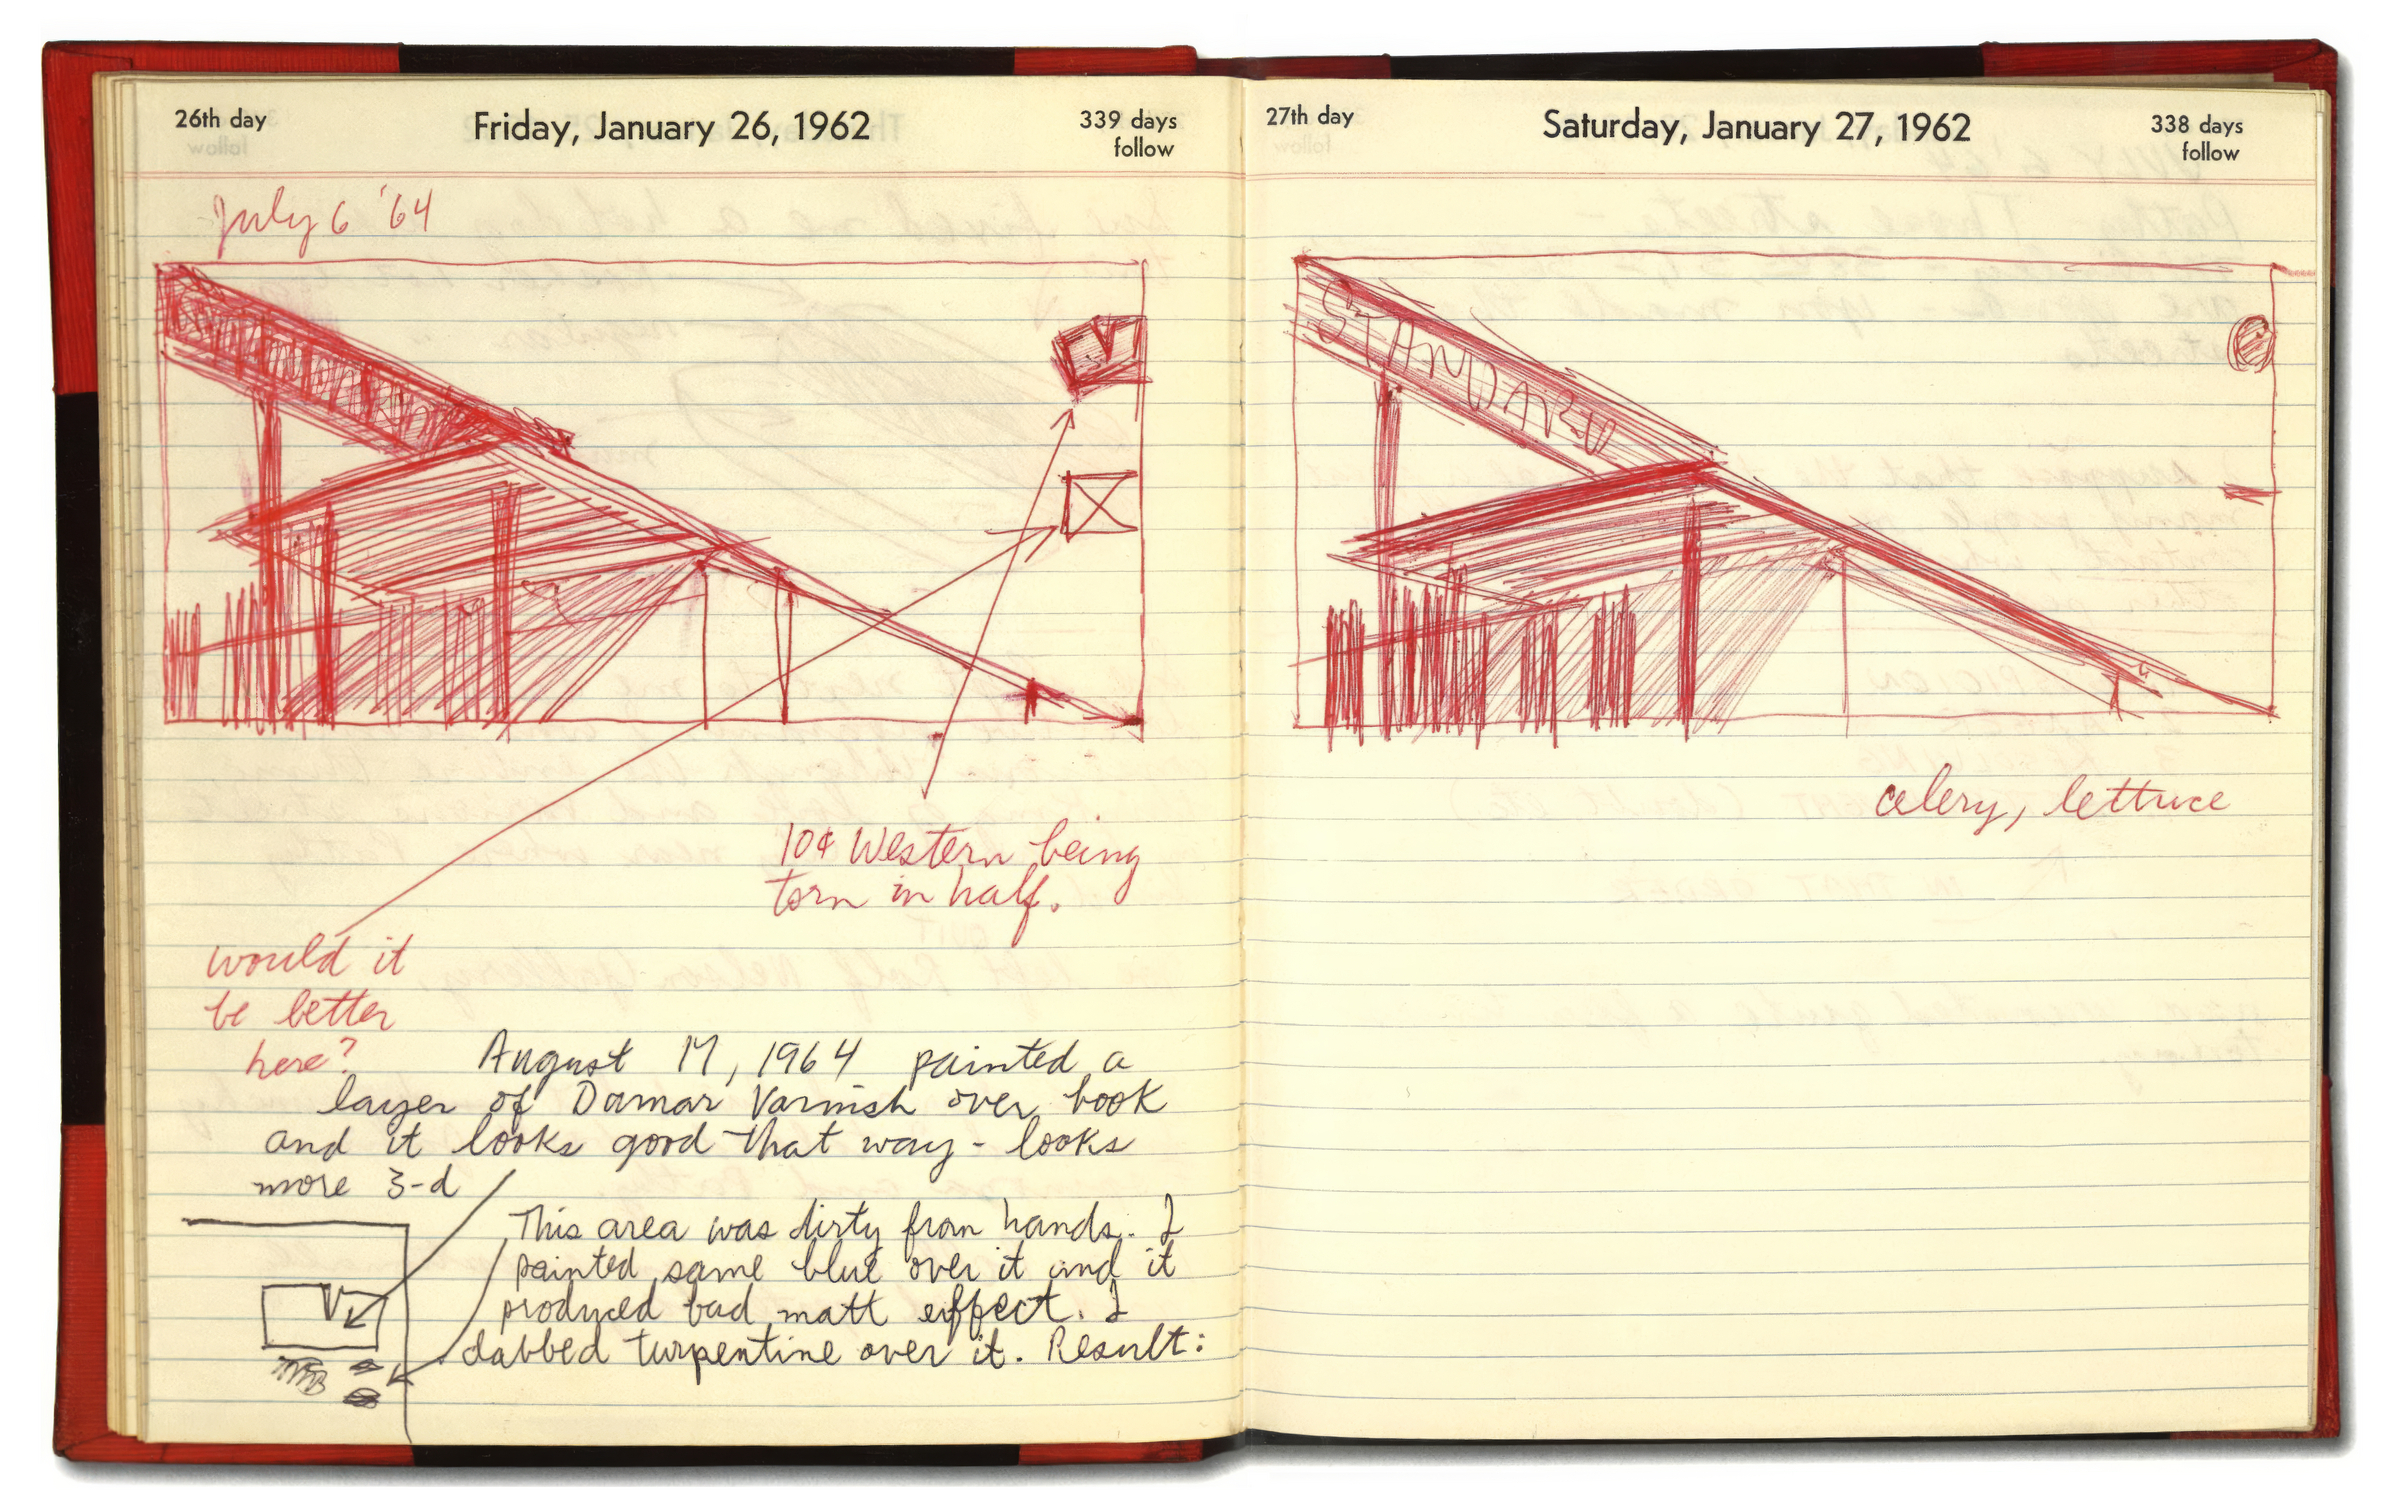 26th day
Friday, January 26, 1962
339 days
follow
July 6 '64
10¢ Western being
torn in half.
would it
be better
here?
August 17, 1964 painted a
layer of Damar Varnish over book
and it looks good that way - looks
more 3-d
This area was dirty from hands. I
painted same blue over it and it
produced bad matt effect. I
dabbed turpentine over it. Result:
27th day
Saturday, January 27, 1962
338 days
follow
STANDARD
celery, lettuce